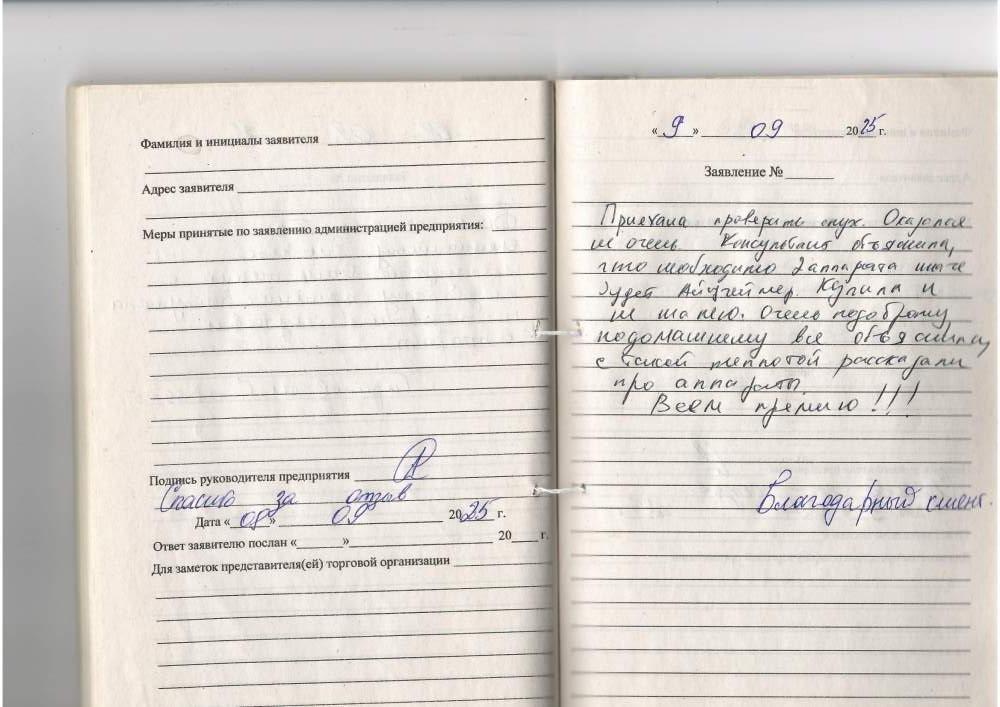 Фамилия и инициалы заявителя
Адрес заявителя
Меры принятые по заявлению администрацией предприятия:
Подпись руководителя предприятия
Спасибо за отзыв
Дата «08» 09 2025 г.
Ответ заявителю послан « » 20 г.
Для заметок представителя(ей) торговой организации
«9» 09 2025 г.
Заявление №
Приехала проверить слух. Оказался
не очень Консультант объяснила,
что необходимо 2 аппарата иначе
будет Айцгеймер. Купила и
не жалею. Очень подоброму
подомашнему все объяснили
с такой теплотой рассказали
про аппараты
Всем премию!!!
Благодарный клиент.